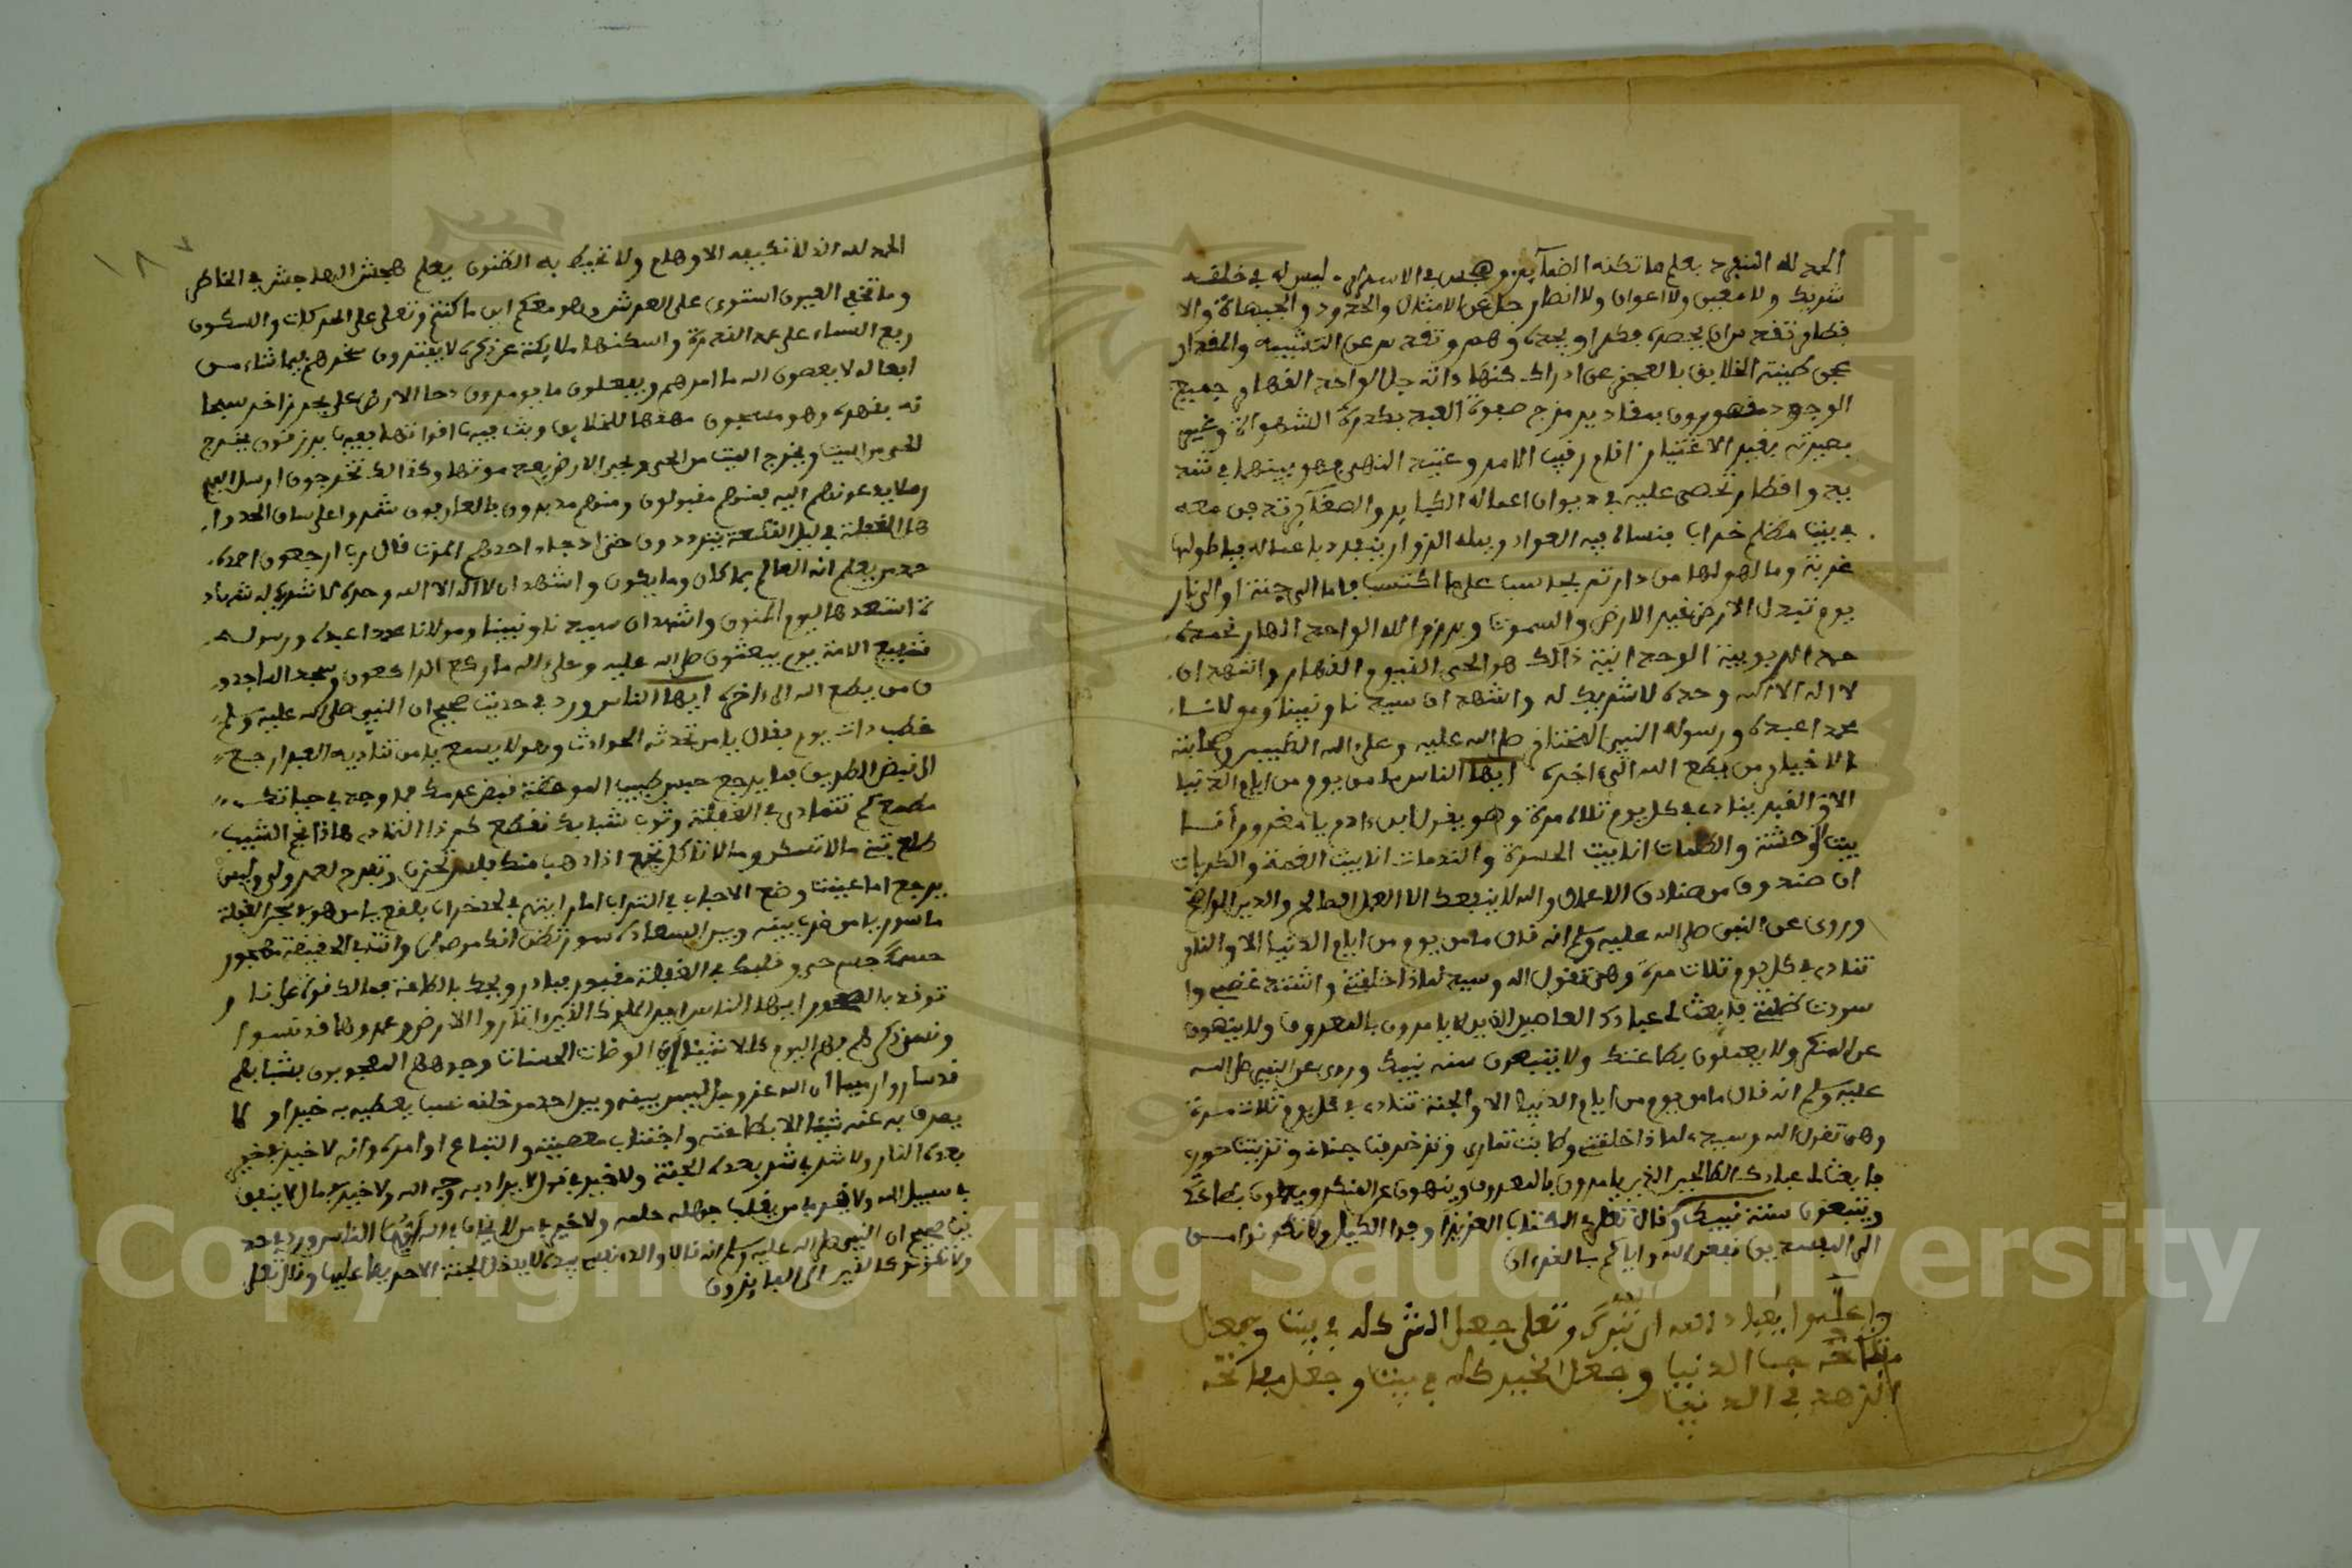 الحمد لله المنفرد بعلم ما تكنه الضمآير وهجس في الاسرار ليس له في خلقه
شريك ولا معين ولا اعوان ولا انصار جل عن الامثال والحدود والجيهاة والا
قطار تقدس ان يحصره فكر او يحده وهم وتقدس عن التشبيه والمقدار
عجن طينة الخلايق بالعجز عن ادراك كنها ذاته جل الواحد القهار جميع
الوجود مقهورون بمقادير مزج صفوة العبد بكدرة الشهواة
بصيرته بغير الاغتيار اقام رقيب الامر وعتيد النهي فهو بينهما في
واقطار تحصى عليه في ديوان اعماله الكباير والصغآير
في بيت مظلم خراب ينساه فيه العواد ويمله الزوار ينفرد باعماله فيا طولها
غربة وما لهولها من دار ثم يحاسب على ما اكتسب فاما الى جنة او الى نار
يوم تبدل الارض غير الارض والسموت وبرزوا لله الواحد القهار نحمده
حمد الربوبية الوحدانية ذالك هو الحي القيوم القهار واشهد ان
لا اله الا الله وحده لا شريك له واشهد ان سيدنا ونبينا ومولانا
محمدا عبده ورسوله النبي المختار صلى الله عليه وعلى اله الطيبين وصحابته
الاخيار من يطع الله الى اخره ايها الناس ما من يوم من ايام الدنيا
الا والقبر ينادي في كل يوم ثلاث مرة وهو يقول ابن ءادم يا مغرور أنا
بيت الوحشة والظلمات انا بيت الحسرة والندمات انا بيت الغمة والكربات
ان صندوق من صنادق الاعمال والله لا ينفعك الا العمل الصالح والدين الواضح
وروى عن النبي صلى الله عليه وسلم انه قال ما من يوم من ايام الدنيا الا والنار
تنادي في كل يوم ثلاث مرة وهي تقول اله وسيد لماذا خلقتني واشتد غضبي وا
سودت ظلمتي فابعث لي عبادك العاصين الذين لا يامرون بالمعروف ولا ينهون
عن المنكر ولا يعملون بطاعتك ولا يتبعون سنه نبيك وروى عن النبي صلى الله
عليه وسلم انه قال ما من يوم من ايام الدنيا الا والجنة تنادي في كل يوم ثلاث مرة
وهي تقول اله وسيدي لماذا خلقتني وطابت ثماري وتزخرفت جنان وتزينت حوري
فابعث لي عبادك الصالحين الذين يامرون بالمعروف وينهون عن المنكر ويعملون بطاعتك
ويتبعون سنة نبيك وقال تعلى في الكتاب العزيز اوفوا الكيل ولا تكونوا من
المخسرين نفعني الله واياكم بالقرءان
واعلموا يعباد الله ان الله تبرك وتعلى جعل الشر كله في بيت وجعل
مفتاحه حب الدنيا وجعل الخير كله في بيت وجعل مفاتحه
الزهد في الدنيا
الحمد لله الذ لا تكيفه الاوهام ولا تحيط به الظنون يعلم هجش الهاجش في الخاطر
وما تخفي العيون استوى على العرش وهو معكم اين ما كنتم وتعلى على الحركات والسكون
رفع السماء على عمد القدرة واسكنها ملايكته عن ذكره لا يفترون سخرهم فيما شاء من
افعاله لا يعصون الله ما امرهم ويفعلون ما يومرون دحا الارض على بحر زاخر
بقهره وهو مسجون مهدها للخلايق وبث فيها اقواتها فهم يرزقون يخرج
الحي من الميت ويخرج الميت من الحي ويحيي الارض بعد موتها وكذالك تخرجون ارسل اليهم
رسلا يدعونهم اليه فمنهم مقبولون ومنهم مدبرون
الغفلة في ليل القطيعة يترددون حتى اذ جاء احدهم الموت قال رب ارجعون احمده
حمد من يعلم انه العالم بما كان وما يكون واشهد ان لا اله الا الله وحده لا شريك له شهاد
ة استعدها ليوم المنون واشهد ان سيدنا ونبينا ومولانا محمدا عبده ورسوله
شفيع الامة يوم يبعثون صلى الله عليه وعلى اله ما ركع الراكعون وسجد الساجدو
ن من يطع الله الى ءاخره ايها الناس ورد في حديث صحيح ان النبي صلى الله عليه وسلم
خطب ذات يوم فقال يا من تحدثه الحوادث وهو لا يسمع يا من تناديه العبر ارجع
الى نيض الطريق فما يرجع حبس طبيب الموعظة نبض عرمك فما وجد في حياتك
مطمع كم تتمادى في الغفلة وثوب شبابك تقطع كم ذا التمادى هاذا فجر الشيب
طلع تبني ما لا تسكن وما لا تاكل تجمع اذا ذهب منك فلاس تحزن وتفرح لعمر ولى وليس
يرجع اما عينت وضع الاحباب في التراب اما رايتهم في لحد خراب بلقع يا من هو في بحر الغفلة
ماسور يا من ضرب بينه وبين السعادة سور تظن انك موصول وانت في الحقيقة مهجور
حسك جسم حي وقلبك في الغفلة مقبور فبادر ويحك بالطاعة فما لك قوة على نار
توقد بالصخور ايها الناس اين الملوك الذين اثاروا الارض وعمروها قد نسوا
ونسي ذكرهم فهم اليوم كلا شيء اين الوضات الحسنات وجوههم المعجبون بشبابهم
قد ساروا رميما ان الله عز وجل ليس بينه وبين احد من خلقه نسب يعطيه به خيرا و لا
يصرف به عنه شيئا الا بطاعته واجتناب معصيته واتباع اوامره وانه لا خير في خير
بعده النار ولا شر في شر بعده الجنة ولا خير في قول لا يراد به وجه الله ولا خير في مال لا ينفق
في سبيل الله ولا خير في من يغلب جهله حلمه ولا خير في من لا يخاف في الله ايها الناس ورد في حد
يث صحيح ان النبي صلى الله عليه وسلم انه قال والذ نفسي بيده لا يدخل الجنة الا حريصا عليها وقال تعلى